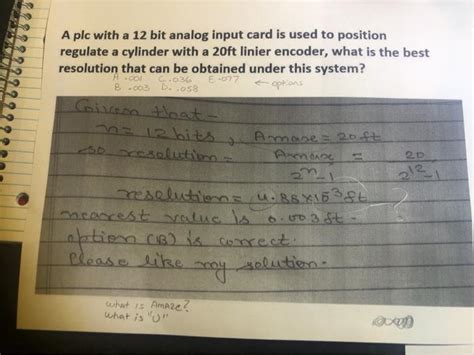 A plc with a 12 bit analog input card is used to position
regulate a cylinder with a 20ft linier encoder, what is the best
resolution that can be obtained under this system?
A .001 C .036 E .077 ← options
B .003 D .058
Given that -
n = 12 bits, Amaxe = 20 ft
so resolution = Amax / 2^n - 1 = 20 / 2^12 - 1
resolution = 4.88 x 10^-3 ft
nearest value is 0.003 ft -
option (B) is correct.
Please like my solution.
?
what is Amaxe?
what is "U"